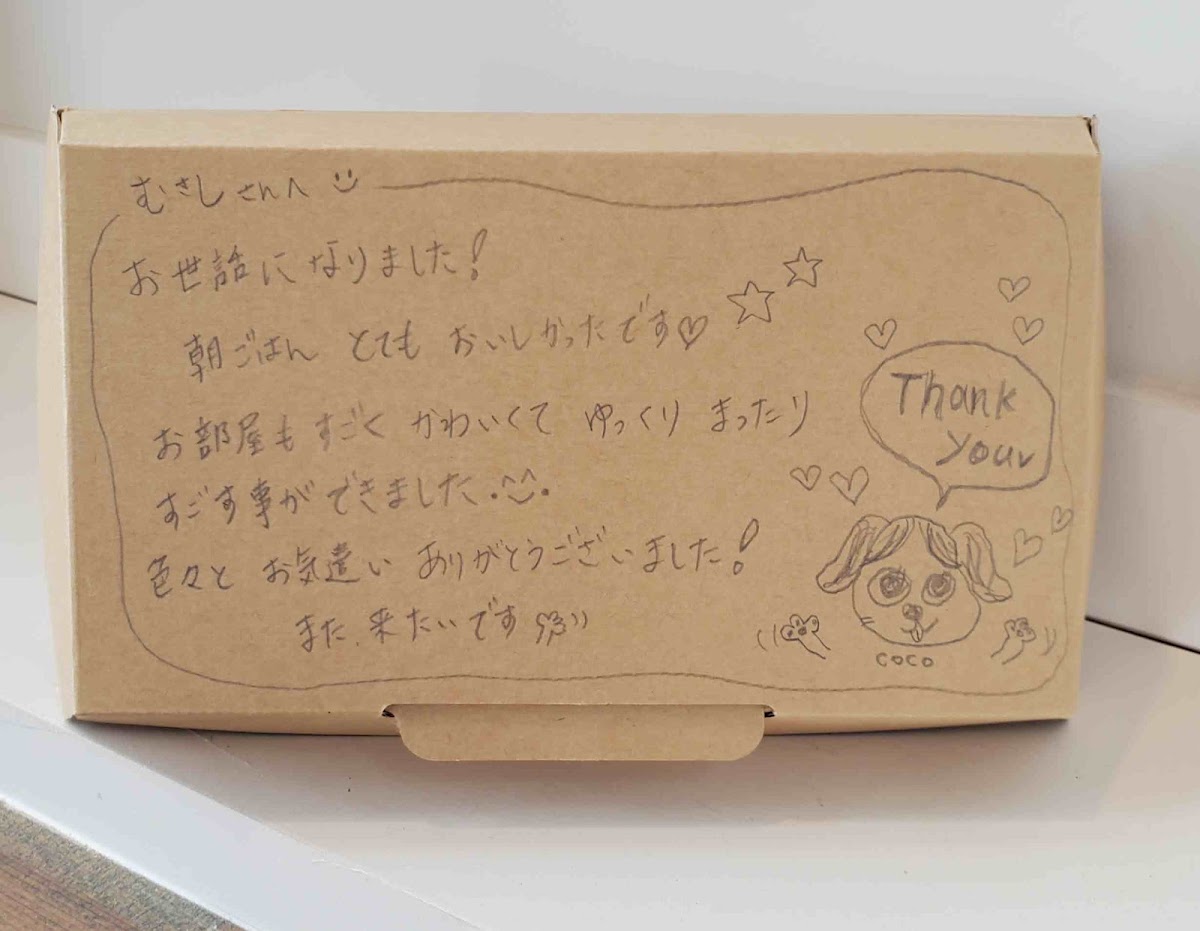 むさしさんへ
お世話になりました!
朝ごはん とても おいしかったです♡
お部屋も すごく かわいくて ゆっくり まったり
すごす事ができました
色々と お気遣い ありがとうございました!
また、来たいです
Thank
you
coco